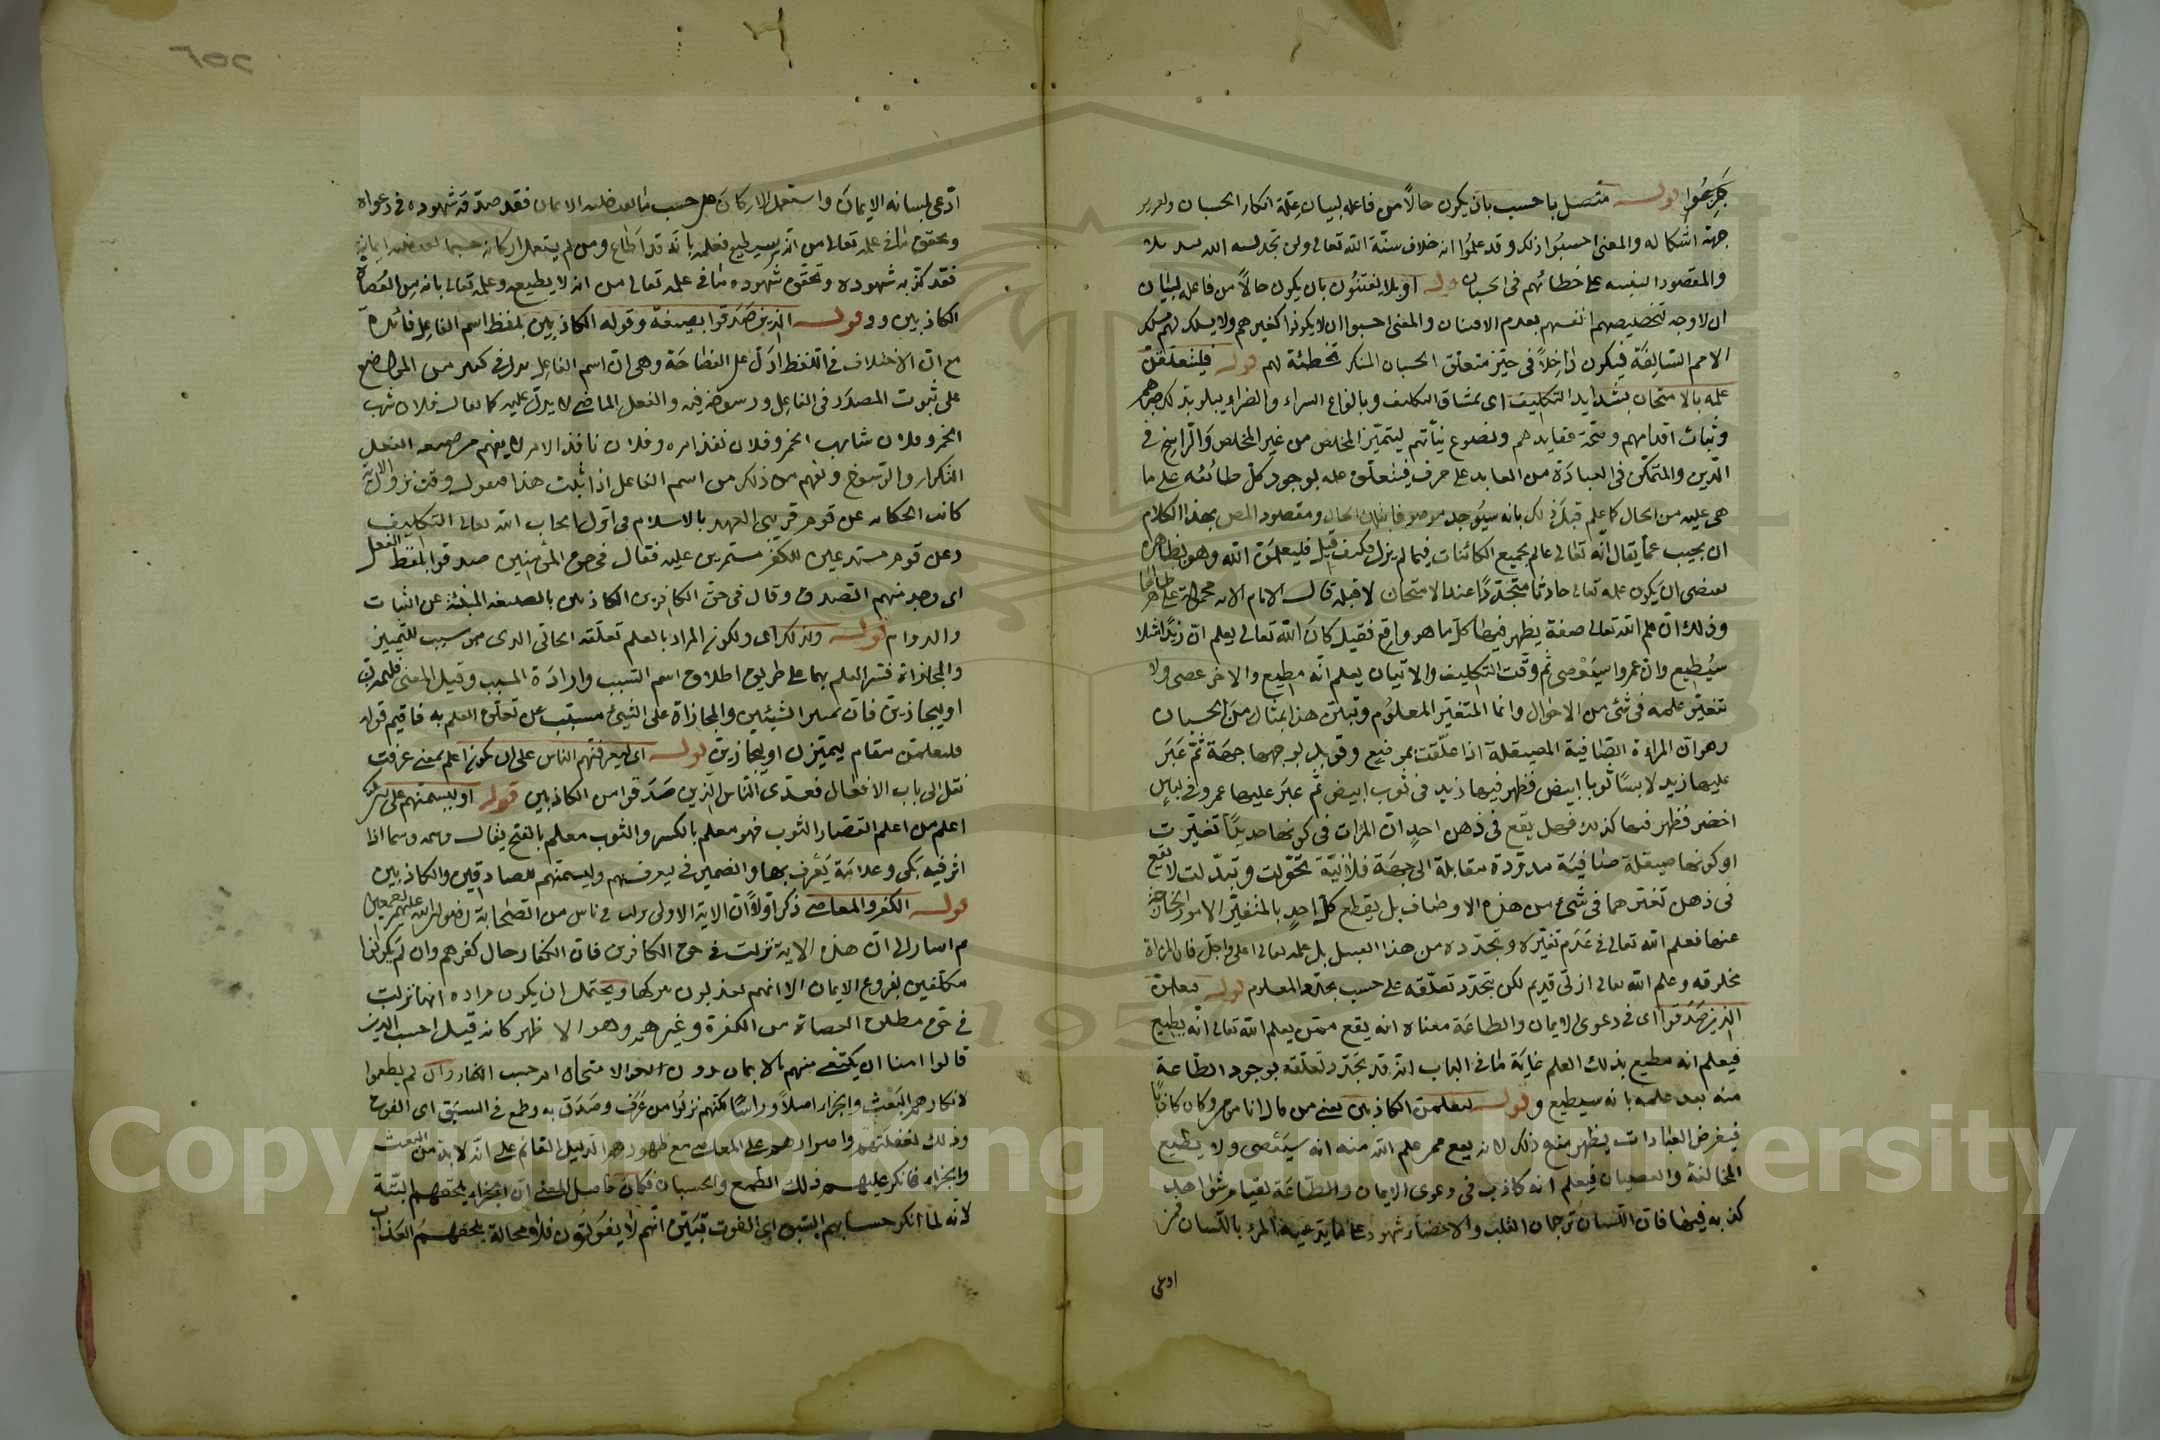 جَزِعُوا قوله متصل باحسب بان يكون حالاً من فاعله لبيان علة انكار الحسبان
جهة اشكاله والمعنى احسبوا ذلك وقد علموا انه خلاف سنة الله تعالى ولن تجد لسنة الله
والمقصود التنبيه على خطائهم في الحسبان قوله او بلا يفتنون بان يكون حالاً من فاعله لبيان
ان لا وجه لتخصيصهم انفسهم بعدم الافتنان والمعنى احسبوا ان لا يكونوا كغيرهم ولا يسلك بهم مسلك
الامم السالفة فيكون داخلاً في حيز متعلق الحسبان المنكر تخطئة لهم قوله فليتعلقن
علمه بالامتحان بشدايد التكليف اى بمشاق التكليف وبانواع السراء والضراء
وثبات اقدامهم وصحة عقايدهم ونصوع نياتهم ليتميز المخلص من غير المخلص والراسخ في
الدين والمتمكن في العبادة من العابد على حرف فيتعلق علمه بوجود كل طائفة على ما
هى عليه من الحال كما علم قبل ذلك بانه سيوجد ومقصود المص بهذا الكلام
ان يجيب عما يقال انه تعالى عالم بجميع الكائنات فيما لم يزل فكيف قيل فليعلمن الله وهو بظاهره
يقتضى ان يكون علمه تعالى حادثا متجددًا عند الامتحان لا قبله قال الامام الآية محمولة على ظاهرها
وذلك ان علم الله تعالى صفة يظهر فيها كل ما هو واقع فقبل كان الله تعالى يعلم ان زيدًا مثلا
سيُطيع وان عمروا سيَعْصى ثم وقت التكليف والاتيان يعلم انه مطيع والاخر عصى ولا
يتغير علمه في شئ من الاحوال وانما المتغير المعلوم ونبين هذا بمثال من الحسيات
وهو ان المرآة الصافية الصيقلة اذا علقت بموضع وقوبل بوجهها جهة ثم عَبَرَ
عليها زيد لابسا ثوبا ابيض فظهر فيها زيد في ثوب ابيض ثم عبر عليها عمرو في لباس
اخضر فظهر فيها كذلك فهل يقع في ذهن احد ان المرآة في كونها حديدا تغيرت
او كونها صيقلة صافية مدورة مقابلة الى جهة فلانية تحولت وتبدلت لا يقع
في ذهن تغيرها في شئ من هذه الاوصاف بل يقطع كل احد بالمتغير الامور الخارجة
عنها فعلم الله تعالى في عدم تغيره وتجدده من هذا القبيل بل علمه تعالى اعلى واجل فان المرآة
مخلوقة وعلم الله تعالى ازلى قديم لكن يتجدد تعلقه على حسب تجدد المعلوم قوله فيعلمن
الذين صدقوا اى في دعوى الايمان والطاعة معناه انه يقع ممن يعلم الله تعالى انه يطيع
فيعلم انه مطيع بذلك العلم غاية ما في الباب انه قد يتجدد تعلقه بوجود الطاعة
منه بعد علمه بانه سيطيع و قوله ليعلمن الكاذبين يعنى من قال انا مؤمن وكان كاذبًا
فبفرض العبادات يظهر منه ذلك لانه يقع ممن علم الله منه انه سيعصى ولا يطيع
المخالفة والعصيان فيعلم انه كاذب في دعوى الايمان والطاعة لقيام شواهد
كذبه فيها فان اللسان ترجمان القلب والاعضاء شهود على ما يدعيه المرء باللسان فمن
ادعى
ادعى بلسانه الايمان واستعمل الاركان على حسب ما يقتضيه الايمان فقد صدقه شهوده في دعواه
وتحقق ما في علمه تعالى من انه سيطيع فعلمه بانه قد اطاع ومن لم يستعمل اركانه حسبما يقتضيه ايمانه
فقد كذبه شهوده وتحقق شهوده ما في علمه تعالى من انه لا يطيع وعلمه تعالى بانه من العصاة
الكاذبين وفى قوله الذين صدقوا بصيغة وقوله الكاذبين بلفظ اسم الفاعل فائدة
مع ان الاختلاف في اللفظ ادل على الفصاحة وهى ان اسم الفاعل يدل في كثير من المواضع
على ثبوت المصدر في الفاعل ورسوخه فيه والفعل الماضى لا يدل عليه كما يقال فلان شرب
الخمر وفلان شارب الخمر وفلان نفذ امره وفلان نافذ الامر لا يفهم من صيغة الفعل
التكرار والرسوخ ويفهم من ذلك من اسم الفاعل اذا ثبت هذا فنقول وقت نزول الاية
كانت الحكاية عن قوم قريبى العهد بالاسلام في اول ايجاب الله تعالى التكليف
وعن قوم مستديمين للكفر مستمرين عليه فقال في حق المؤمنين صدقوا بلفظ الفعل
اى وجد منهم الصدق وقال في حق الكافرين الكاذبين بالصيغة المنبئة عن الثبات
والدوام قوله ولذلك اى ولكون المراد بالعلم تعلقه الحالى الذى هو سبب للتمييز
والمجازاة فسر العلم بهما على طريق اطلاق اسم السبب وارادة المسبب وقيل المعنى فليميزن
او ليجازين فان تمييز الشيئين والمجازاة على الشئ مسبب عن تعلق العلم به فاقيم قوله
فليعلمن مقام ليميزن او ليجازين قوله اى ليعرفنهم الناس على ان يكون اعلم بمعنى عرفت
نقل الى باب الافعال فعدى الناس الذين صدقوا من الكاذبين قوله او ليسمنهم على
اعلم من اعلم القصار الثوب فهو معلم بالكسر والثوب معلم بالفتح يقال وسمه وسما اذا
اثر فيه بكى وعلامة يُعرف بها والضمير في ليعرفنهم وليسمنهم للصادقين والكاذبين
قوله الكفر والمعاصى ذكر اولاً ان الاية الاولى نزلت في ناس من الصحابة رضوان الله عليهم اجمعين
ثم اشار الى ان هذه الاية نزلت في حق الكافرين فان الكفار حال كفرهم وان لم يكونوا
مكلفين بفروع الايمان الا انهم يعذبون بتركها ويحتمل ان يكون مراده انها نزلت
في حق مطلق العصاة من الكفرة وغيرهم وهو الاظهر كانه قيل احسب الذين
قالوا امنا ان يكتفى منهم بالايمان بدون الامتحان ام حسب الكفار ان لم يطيعوا
لانكارهم البعث والجزاء اصلاً وراسًا لكنهم نزلوا من عرف وصدق به وطمع في السبق اى الفوت
وذلك لغفلتهم واصرارهم على المعاصى مع ظهور الدليل القائم على انه لا بد من البعث
والجزاء فانكر عليهم ذلك الطمع والحسبان فكان حاصل المعنى ان الجزاء يلحقهم البتة
لانه لما انكر حسبانهم السبق اى الفوت تبين انهم لا يفوتون فلا محالة يلحقهم العذاب